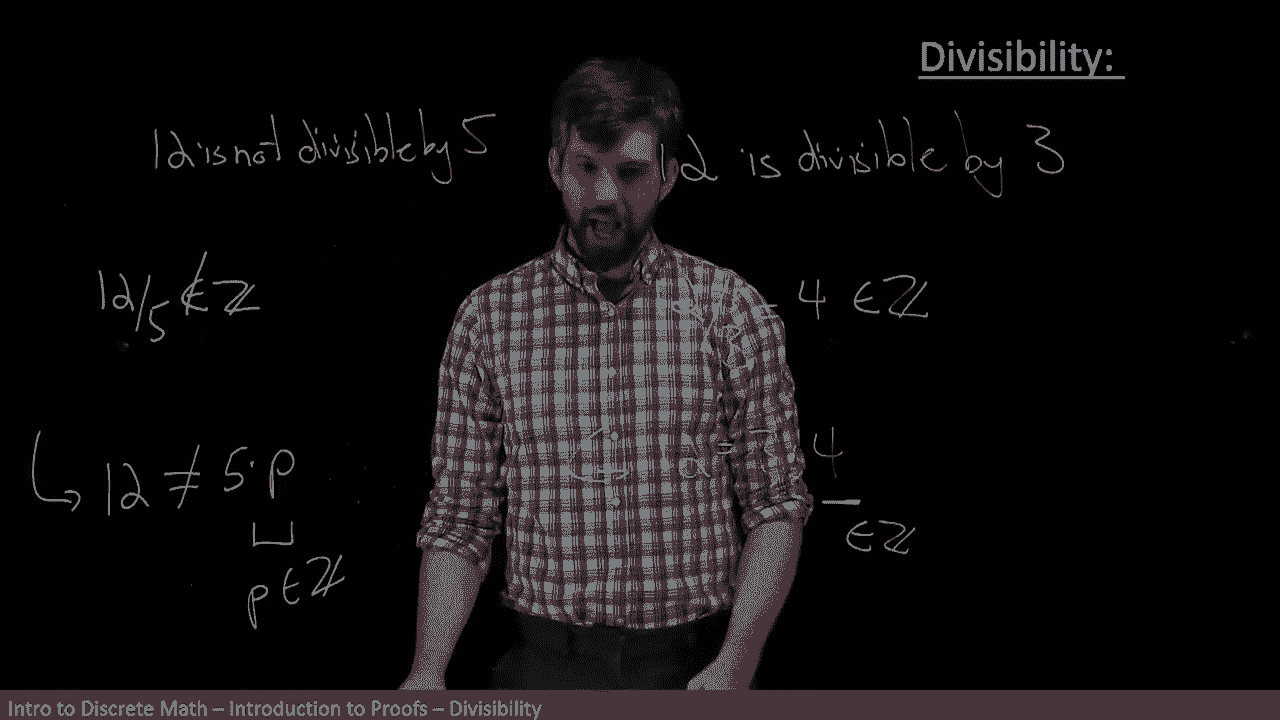 Divisibility:
12 is not divisible by 5
12 is divisible by 3
12/5 ∉ ℤ
12/3 = 4 ∈ ℤ
↳ 12 ≠ 5·p
p ∈ ℤ
12 = 3 4
∈ ℤ
Intro to Discrete Math – Introduction to Proofs – Divisibility